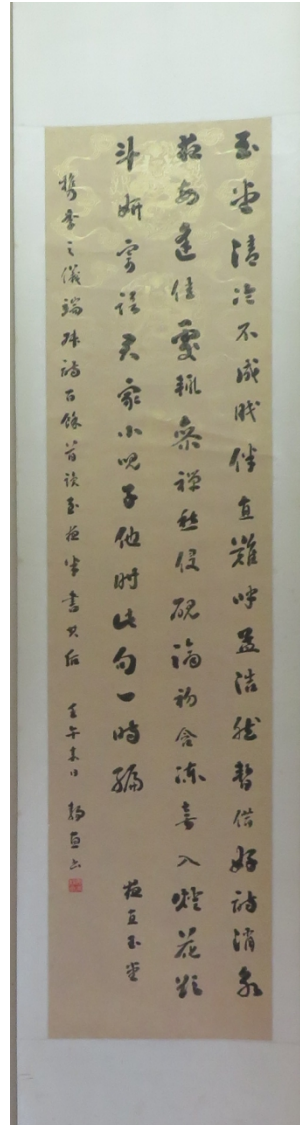 玉堂清冷不成眠伴直難呼孟浩然暫借好詩消永
夜每逢佳處輒參禪愁侵硯滴初含凍喜入燈花欲
斗妍寄語君家小兒子他時此句一時編 夜直玉堂
攜李之儀端叔詩百餘首讀至夜半書其后 壬午